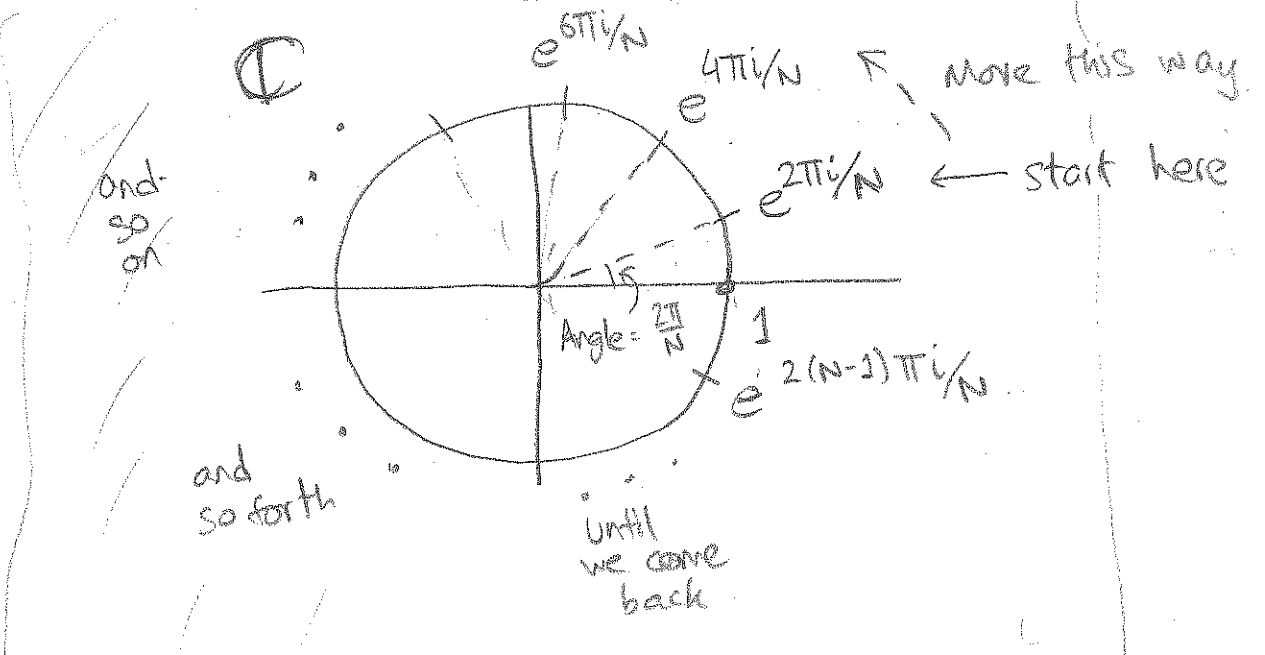 ℂ
e^{6πi/N}
e^{4πi/N}
Move this way
e^{2πi/N} ← start here
and
so
on
Angle = 2π/N
1
e^{2(N-1)πi/N}
and
so forth
until
we come
back